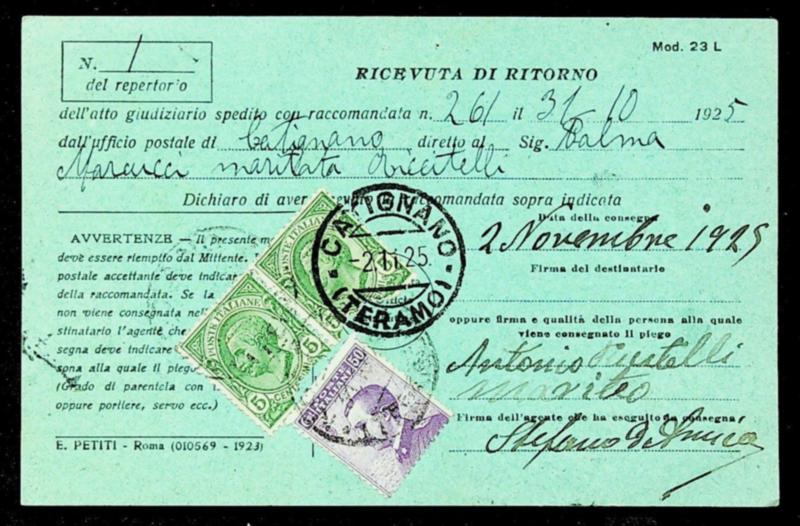 Mod. 23 L
N. 1
del repertorio
RICEVUTA DI RITORNO
dell'atto giudiziario spedito con raccomandata n. 261 il 31-10 1925
dall'ufficio postale di Catignano diretto al Sig. Palma
Marcucci maritata Ricitelli
Dichiaro di aver raccomandata sopra indicata
Data della consegna
2 Novembre 1925
Firma del destinatario
AVVERTENZE - Il presente m
deve essere riempito dal Mittente.
postale accettante deve indicar
della raccomandata. Se la
non viene consegnata nell
stinatario l'agente che
segna deve indicare
sona alla quale il piego
(Grado di parentela con
oppure portiere, servo ecc.)
CATIGNANO
-2.11.25.
(TERAMO)
POSTE ITALIANE
5 CENTESIMI 5
POSTE ITALIANE
50
oppure firma e qualità della persona alla quale
viene consegnato il piego
Antonio
marito
Firma dell'agente che ha eseguito la consegna
Stefano d'Amico
E. PETITI - Roma (010569 - 1923)